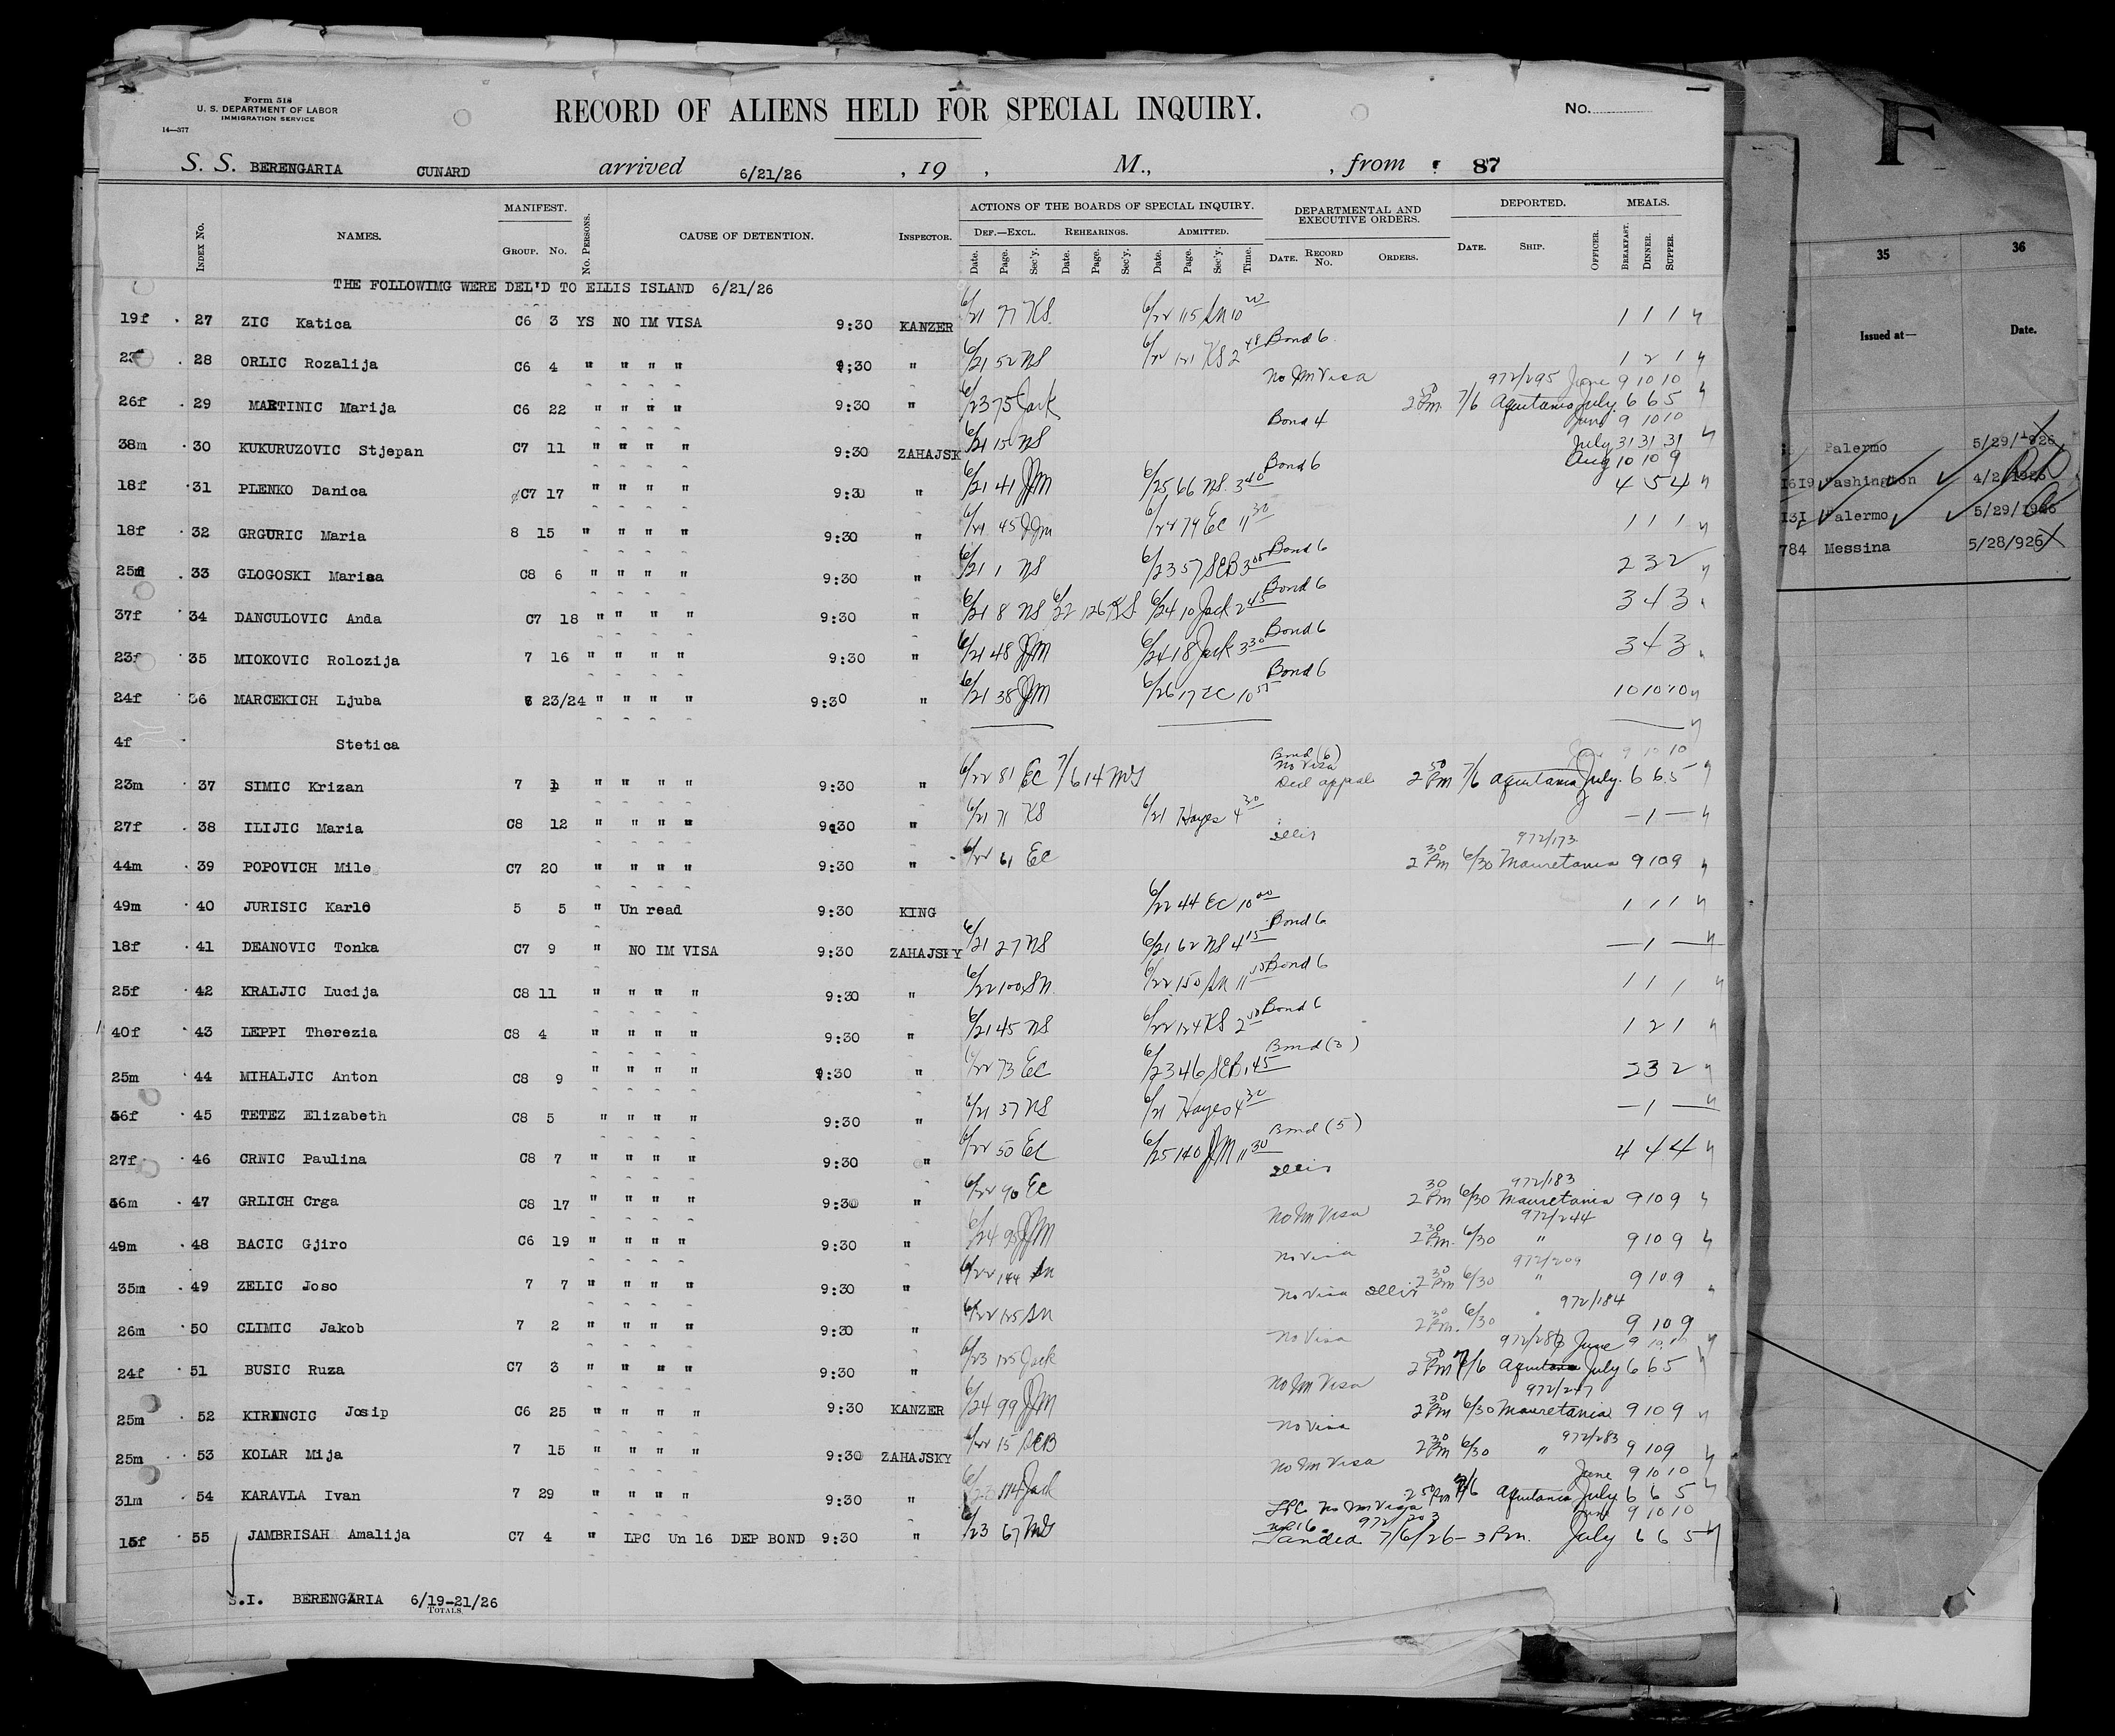 Form 518
U. S. DEPARTMENT OF LABOR
IMMIGRATION SERVICE
14—377
RECORD OF ALIENS HELD FOR SPECIAL INQUIRY.
No.
S. S. BERENGARIA CUNARD arrived 6/21/26 , 19 , M., , from 87
INDEX No. NAMES. MANIFEST. GROUP. No. No. PERSONS. CAUSE OF DETENTION. INSPECTOR. ACTIONS OF THE BOARDS OF SPECIAL INQUIRY. DEF.—EXCL. REHEARINGS. ADMITTED. DEPARTMENTAL AND EXECUTIVE ORDERS. DEPORTED. MEALS.
Date. Page. Sec'y. Date. Page. Sec'y. Date. Page. Sec'y. Time. DATE. RECORD No. ORDERS. DATE. SHIP. OFFICER. BREAKFAST. DINNER. SUPPER.
THE FOLLOWIMG WERE DEL'D TO ELLIS ISLAND 6/21/26
19f 27 ZIC Katica C6 3 YS NO IM VISA 9:30 KANZER 6/21 77 KS 6/22 115 SN 10 1 1 1
28 ORLIC Rozalija C6 4 " " " " 9:30 " 6/21 52 NS 6/22 121 KS 2 48 Bond 6 1 2 1
26f 29 MARTINIC Marija C6 22 " " " " 9:30 " 6/23 75 Jack No Im Visa 2 50 Pm 7/6 972/295 Aquitania June 9 10 10 July 6 6 5
38m 30 KUKURUZOVIC Stjepan C7 11 " " " " 9:30 ZAHAJSK 6/21 15 NS Bond 4 June 9 10 10 July 31 31 31 Aug 10 10 9
18f 31 PLENKO Danica C7 17 " " " " 9:30 " 6/21 41 JJM 6/25 66 NS 3 40 Bond 6 4 5 4
18f 32 GRGURIC Maria 8 15 " " " " 9:30 " 6/21 45 JJM 6/22 79 EC 11 30 1 1 1
25f 33 GLOGOSKI Marisa C8 6 " " " " 9:30 " 6/21 1 NS 6/23 57 SEB 3 00 Bond 6 2 3 2
37f 34 DANCULOVIC Anda C7 18 " " " " 9:30 " 6/21 8 NS 6/22 126 KS 6/24 10 Jack 2 45 Bond 6 3 4 3
23f 35 MIOKOVIC Rolozija 7 16 " " " " 9:30 " 6/21 48 JJM 6/24 18 Jack 3 30 Bond 6 3 4 3
24f 36 MARCEKICH Ljuba 23/24 " " " " 9:30 " 6/21 38 JJM 6/26 17 EC 10 55 Bond 6 10 10 10
4f Stetica
23m 37 SIMIC Krizan 7 1 " " " " 9:30 " 6/22 81 EC 7/6 14 Bond (6) No Visa Decl appeal 2 50 Pm 7/6 Aquitania June 9 10 10 July 6 6 5
27f 38 ILIJIC Maria C8 12 " " " " 9:30 " 6/21 71 KS 6/21 Hayes 4 30 — 1 —
44m 39 POPOVICH Mile C7 20 " " " " 9:30 " 6/22 61 EC 2 30 Pm 6/30 972/173 Mauretania 9 10 9
49m 40 JURISIC Karlo 5 5 " Un read 9:30 KING 6/22 44 EC 10 00 1 1 1
18f 41 DEANOVIC Tonka C7 9 " NO IM VISA 9:30 ZAHAJSKY 6/21 27 NS 6/21 62 NS 4 15 Bond 6 — 1 —
25f 42 KRALJIC Lucija C8 11 " " " " 9:30 " 6/22 100 SN 6/22 150 SN 11 Bond 6 1 1 1
40f 43 LEPPI Therezia C8 4 " " " " 9:30 " 6/21 45 NS 6/22 124 KS 2 Bond 6 1 2 1
25m 44 MIHALJIC Anton C8 9 " " " " 9:30 " 6/22 73 EC 6/23 46 SEB 1 45 Bond (3) 2 3 2
56f 45 TETEZ Elizabeth C8 5 " " " " 9:30 " 6/21 37 NS 6/21 Hayes 4 30 — 1 —
27f 46 CRNIC Paulina C8 7 " " " " 9:30 " 6/22 50 EC 6/25 140 JJM 11 30 Bond (5) 4 4 4
46m 47 GRLICH Crga C8 17 " " " " 9:30 " 6/22 90 EC 2 30 Pm 6/30 972/183 Mauretania 9 10 9
49m 48 BACIC Gjiro C6 19 " " " " 9:30 " 6/24 95 JJM No Im Visa 2 30 Pm 6/30 972/244 " 9 10 9
35m 49 ZELIC Joso 7 7 " " " " 9:30 " 6/22 144 SN No Visa 2 30 Pm 6/30 972/209 " 9 10 9
26m 50 CLIMIC Jakob 7 2 " " " " 9:30 " 6/22 125 SN No Visa 2 30 Pm 6/30 972/184 " 9 10 9
24f 51 BUSIC Ruza C7 3 " " " " 9:30 " 6/23 125 Jack No Visa 2 50 Pm 7/6 Aquitania June 9 10 10 July 6 6 5
25m 52 KIRINCIC Josip C6 25 " " " " 9:30 KANZER 6/24 99 JJM No Im Visa 2 30 Pm 6/30 972/247 Mauretania 9 10 9
25m 53 KOLAR Mija 7 15 " " " " 9:30 ZAHAJSKY 6/22 15 SEB No Visa 2 30 Pm 6/30 972/283 " 9 10 9
31m 54 KARAVLA Ivan 7 29 " " " " 9:30 " 6/23 114 Jack No Im Visa 2 50 Pm 7/6 Aquitania June 9 10 10 July 6 6 5
15f 55 JAMBRISAH Amalija C7 4 " LPC Un 16 DEP BOND 9:30 " 6/23 67 LPC No Im Visa Un 16 972/203 Landed 7/6/26 - 3 Pm. June 9 10 10 July 6 6 5
S.I. BERENGARIA 6/19-21/26
TOTALS
F
35 36
Issued at— Date.
Palermo 5/29/1926
1619 Washington 4/2/1926
131 Palermo 5/29/1926
784 Messina 5/28/926